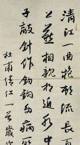 清江一曲抱村流長夏
燕相親相近水中鷗
子敲針作釣鉤多病
杜甫清江一